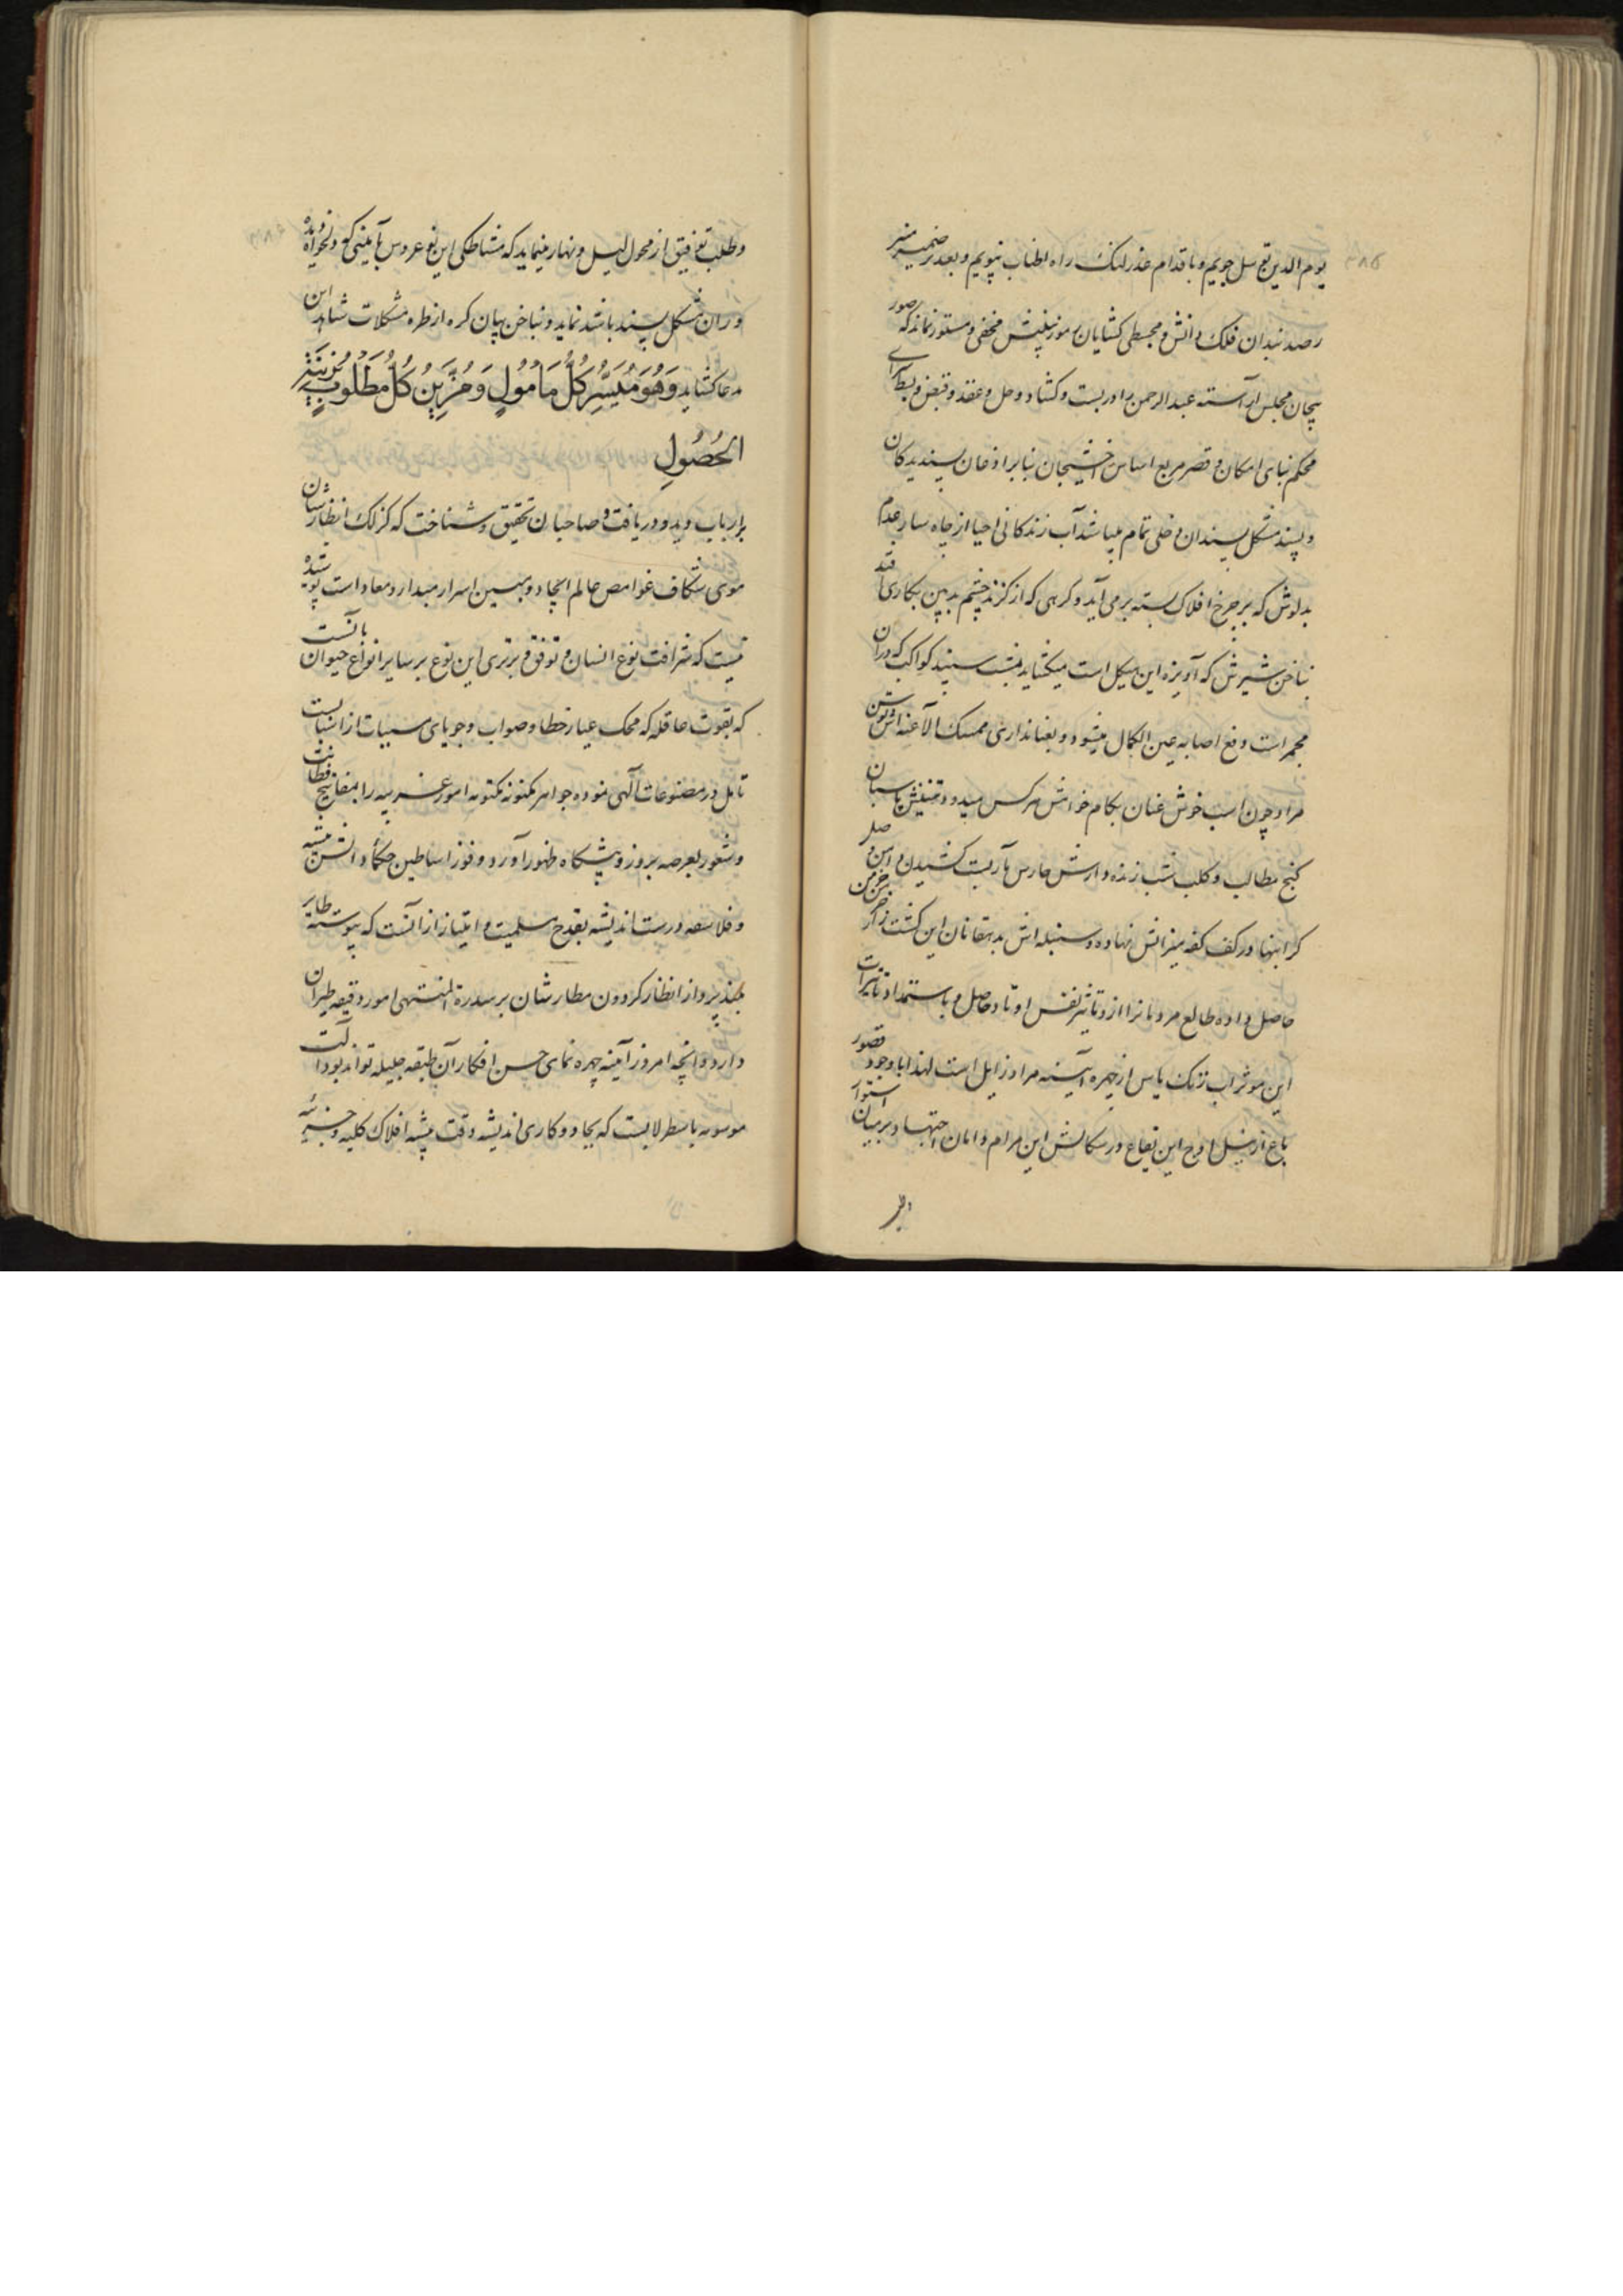 یوم الدین توسل جوییم و باقدام عذر لنک راه اطناب نپوییم و بعد بر ضمیر منیر
رصد بندان فلک دانش و مجسطی کشایان رموز بینش مخفی و مستور نماند که صور
پیچان مجلس آراسته عبدالرحمن را در بست و کشاد و حل و عقد و قبض و بسط آرای
محکم بنای امکان و قصر مربع اساس اخشیجان بنا بر اذعان پسندیدکان
و پسند مشکل پسندان دخلی تمام میباشد آب زندکانی احیا از چاه سار عدم
بدلوش که بر چرخ افلاک بسته بر می آید و کرهی که از کزند چشم بد بین بکاری افتد
بناخن شیرش که آویزه این هیکل است میکشاید سپند کواکب که در آن
مجمر است دفع اصابه عین الکمال میشود و بعنانداری ممسک الاعنه اش توسن
مراد چون اسب خوش عنان بکام خواهش هر کس میدود و تنینش پاسبان
کنج مطالب و کلب شب زنده دارش حارس مآرب کشیدن و امن صلر
کرانبها در کف کفه میزانش نهاده و سنبله اش بدهقانان این کشت زار خرمن
حاصل داده طالع مردمانرا از و تاثیر نفس اوتاد حاصل و باستمداد تاثیرات
این موثرات زنک یاس از چهره آینه مراد زایل است لهذا با وجود قصور
باع از نیل اوج این بقاع در سکالش این مرام دامان اجتهاد بر میان استوار
وطلب توفیق از محول لیل و نهار مینماید که مشاطکی این نو عروس بآیینی که دلخواه دیده
وران مشکل پسند باشد نماید و بناخن بیان کره از طره مشکلات شاهد این
مدعا کشاید وَهُوَ مُیَسِّرُ کُلِّ مَأمُولٍ وَ مُزَیِّنُ کُلِّ مَطْلُوبٍ بِزِینَةِ
الْحُصُولِ
بر ارباب دید و دریافت و صاحبان تحقیق و شناخت که کزلک انظارشان
موی شکاف غوامض عالم ایجاد و مبین اسرار مبدا و معاد است پوشیده
نیست که شرافت نوع انسان و تفوق و برتری این نوع بر سایر انواع حیوان بآنست
که بقوت عاقله که محک عیار خطا و صواب و جویای مسببات از اسبابست
تامل در مصنوعات آلهی نموده جواهر مکنونه مکتومه امور غریبه را بمفاتیح فطانت
و شعور بعرصه بروز و پیشکاه ظهور آورد و فوز اساطین حکمای دانش پیشه
و فلاسفه درست اندیشه بقدح مسلمیت و امتیاز از آنست که پیوسته طایر
بلند پرواز انظار کردون مطارشان بر سدرة المنتهی امور دقیقه طیران
دارد و آنچه امروز آیینه چهره نمای حسن افکار آن طبقه جلیله تواند بود آلت
موسومه باسطرلابست که بجادوکاری اندیشه دقت پیشه افلاک کلیه و جزئیه